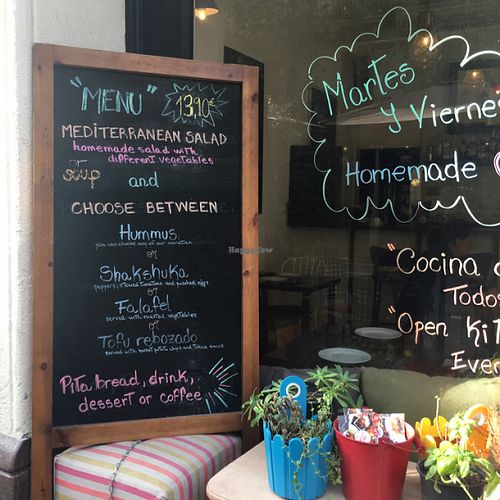 "MENU" 13,90€
MEDITERRANEAN SALAD
homemade salad with
different vegetables
or
soup
and
CHOOSE BETWEEN
Hummus
you can choose any of our varieties
or
Shakshuka
peppers, stewed tomatoes and poached eggs
or
Falafel
served with roasted vegetables
or
Tofu rebozado
served with sweet potato chips and tahini sauce
Pita bread, drink,
dessert or coffee
Martes
y Vierne
Homemade
"Cocina
Todo
"Open Kit
Ever
HappyCow